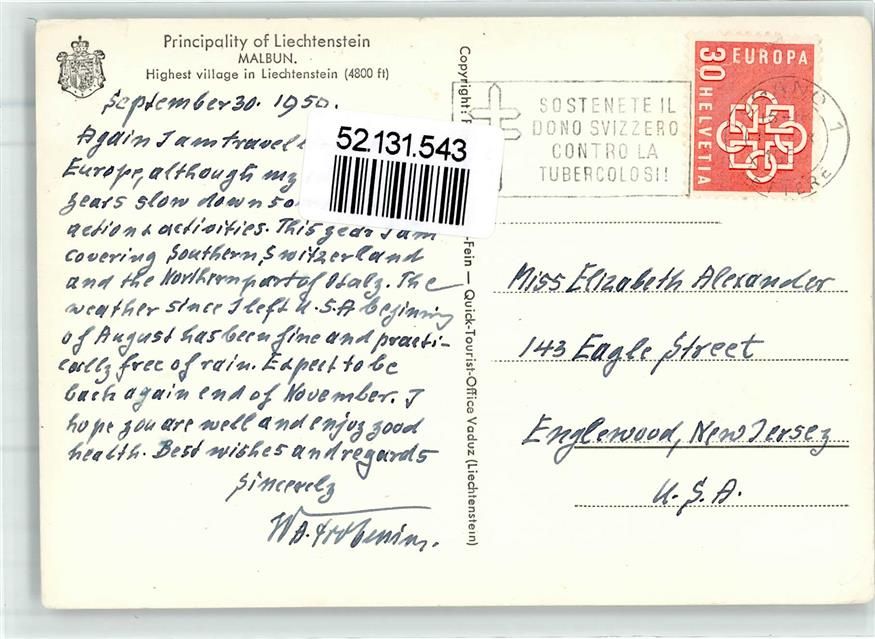 Principality of Liechtenstein
MALBUN.
Highest village in Liechtenstein (4800 ft)
September 30. 1950.
Again I am travel
Europe, although my
years slow down so
actions activities. This year I am
covering Southern Switzerland
and the Northern part of Italy. The
weather since I left U.S.A begining
of August has been fine and practi-
cally free of rain. Expect to be
back again end of November. I
hope you are well and enjoy good
health. Best wishes and regards
Sincerely
W.A.
52.131.543
Copyright:
-Fein — Quick-Tourist-Office Vaduz (Liechtenstein)
SOSTENETE IL
DONO SVIZZERO
CONTRO LA
TUBERCOLOSI!
EUROPA
30 HELVETIA
1
Miss Elizabeth Alexander
143 Eagle Street
Englewood, New Jersey
U.S.A.